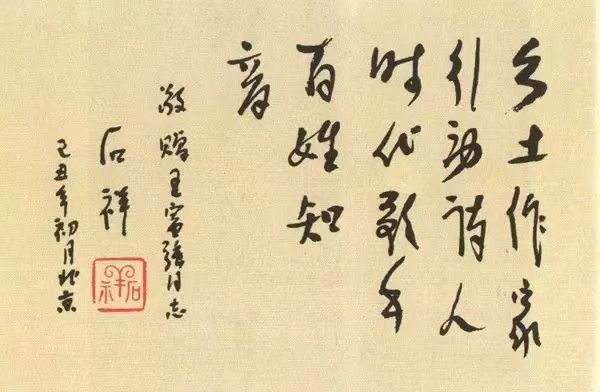 乡土作家
行动诗人
时代歌手
百姓知
音
敬赠王富强同志
石祥
己丑年初月北京
石祥